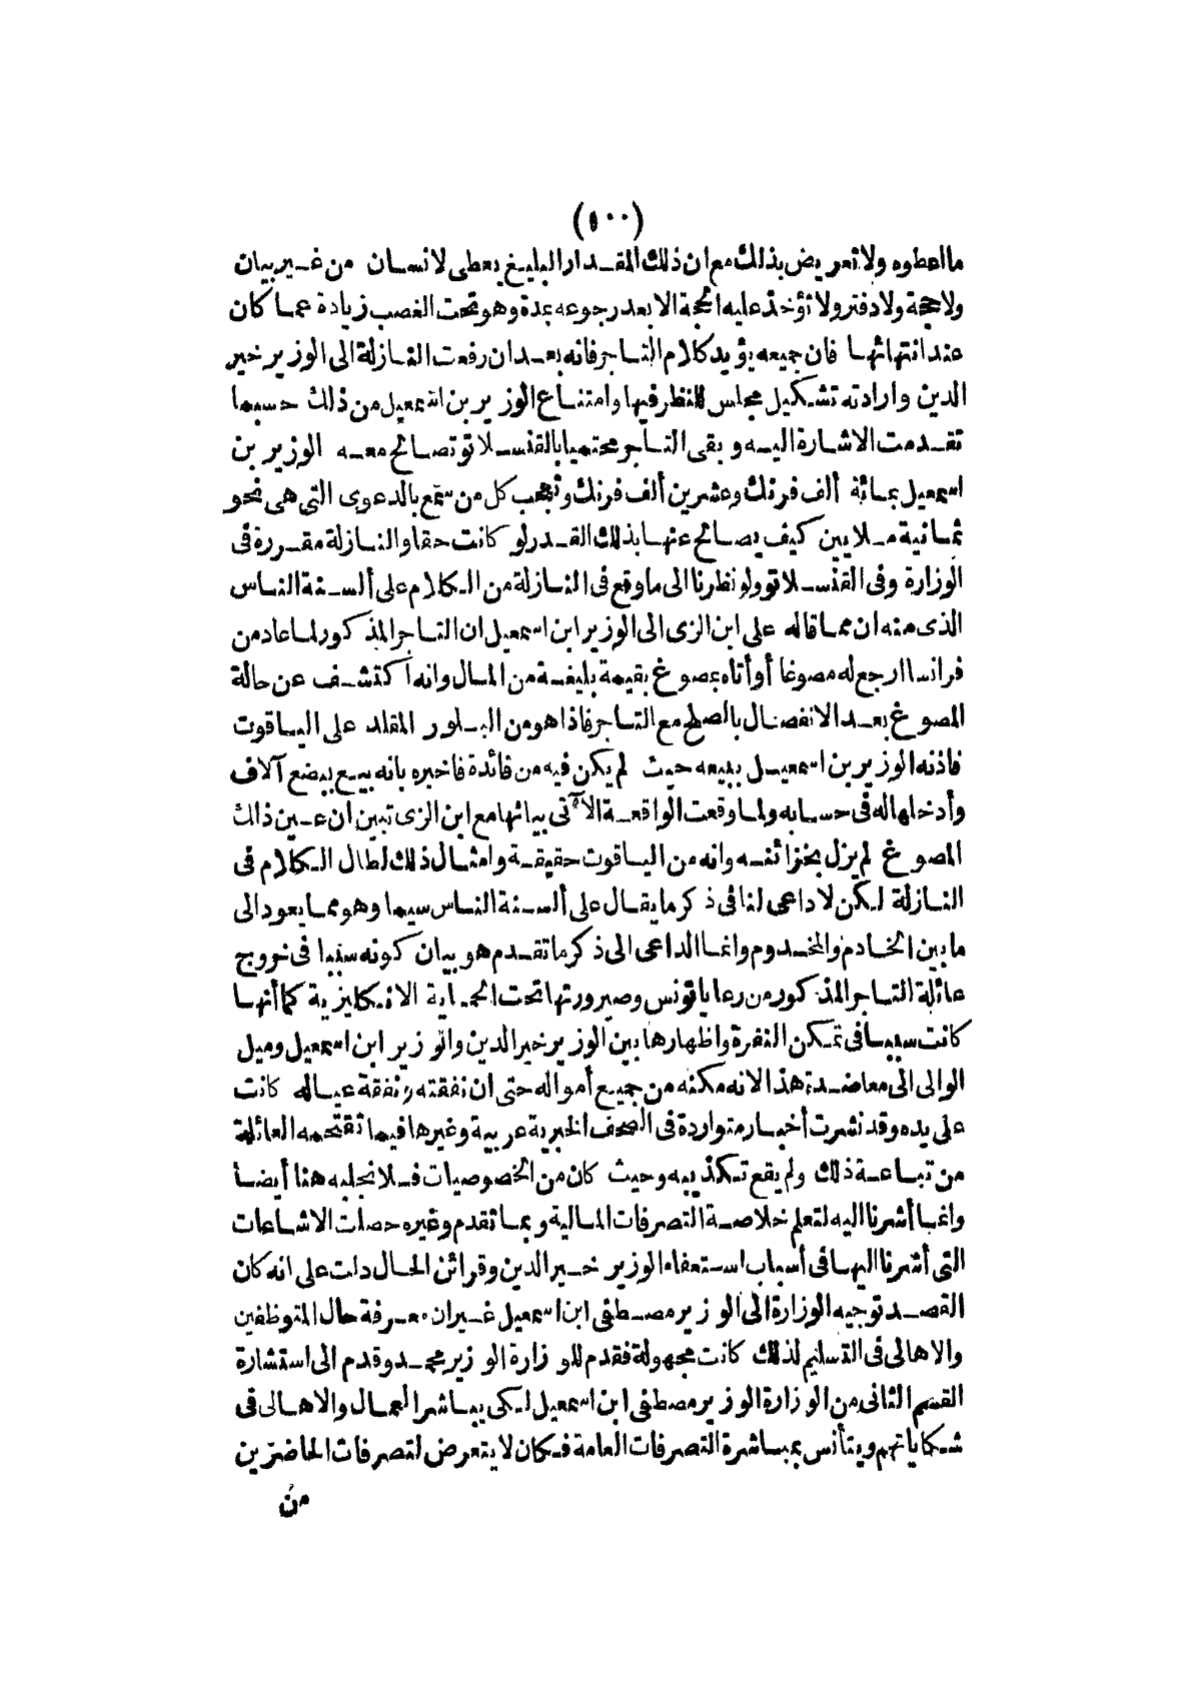 (٥٠٠)
ما اعطوه ولا تعريض بذلك مع ان ذلك المقدار البليغ يعطى لانسان من غير بيان
ولا حجة ولا دفتر ولا تؤخذ عليه الحجة الا بعد رجوعه بمدة وهو تحت الغصب زيادة عما كان
عند انتهائها فان جميعه يؤيد كلام التاجر فانه بعد ان رفعت النازلة الى الوزير خير
الدين وارادته تشكيل مجلس للنظر فيها وامتناع الوزير بن اسمعيل من ذلك حسبما
تقدمت الاشارة اليه وبقى التاجر محتميا بالقنسلاتو تصالح معه الوزير بن
اسمعيل بمائة ألف فرنك وعشرين ألف فرنك وتعجب كل من سمع بالدعوى التى هى نحو
ثمانية ملايين كيف يصالح عنها بذلك القدر لو كانت حقا والنازلة مقررة فى
الوزارة وفى القنسلاتو ولو نظرنا الى ما وقع فى النازلة من الكلام على ألسنة الناس
الذى منه ان مما قاله على ابن الزى الى الوزير ابن اسمعيل ان التاجر المذكور لما عاد من
فرانسا ارجع له مصوغا أو أتاه بمصوغ بقيمة بليغة من المال وانه اكتشف عن حالة
المصوغ بعد الانفصال بالصلح مع التاجر فاذا هو من البلور المقلد على الياقوت
فاذنه الوزير بن اسمعيل ببيعه حيث لم يكن فيه من فائدة فاخبره بانه بيع ببضع آلاف
وأدخلها له فى حسابه ولما وقعت الواقعة الآتى بيانها مع ابن الزى تبين ان عين ذلك
المصوغ لم يزل بخزائنه وانه من الياقوت حقيقة وامثال ذلك لطال الكلام فى
النازلة لكن لا داعى لنا فى ذكر ما يقال على ألسنة الناس سيما وهو مما يعود الى
ما بين الخادم والمخدوم وانما الداعى الى ذكر ما تقدم هو بيان كونه سببا فى خروج
عائلة التاجر المذكور من رعايا تونس وصيرورتها تحت الحماية الانكليزية كما أنها
كانت سببا فى تمكن النفرة واظهارها بين الوزير خير الدين والوزير ابن اسمعيل وميل
الوالى الى معاضدة هذا لانه مكنه من جميع أمواله حتى ان نفقته ونفقة عياله كانت
على يده وقد نشرت أخبار متواردة فى الصحف الخبرية عربية وغيرها فيما تقتحمه العائلة
من تباعة ذلك ولم يقع تكذيبه وحيث كان من الخصوصيات فلا نجلبه هنا أيضا
وانما أشرنا اليه لتعلم خلاصة التصرفات المالية وبما تقدم وغيره حصلت الاشاعات
التى أشرنا اليها فى أسباب استعفاء الوزير خير الدين وقرائن الحال دلت على انه كان
القصد توجيه الوزارة الى الوزير مصطفى ابن اسمعيل غير ان معرفة حال المتوظفين
والاهالى فى التسليم لذلك كانت مجهولة فقدم للوزارة الوزير محمد وقدم الى استشارة
القسم الثانى من الوزارة الوزير مصطفى ابن اسمعيل لكى يباشر العمال والاهالى فى
شكاياتهم ويتأنس بمباشرة التصرفات العامة فكان لا يتعرض لتصرفات الحاضرين
من